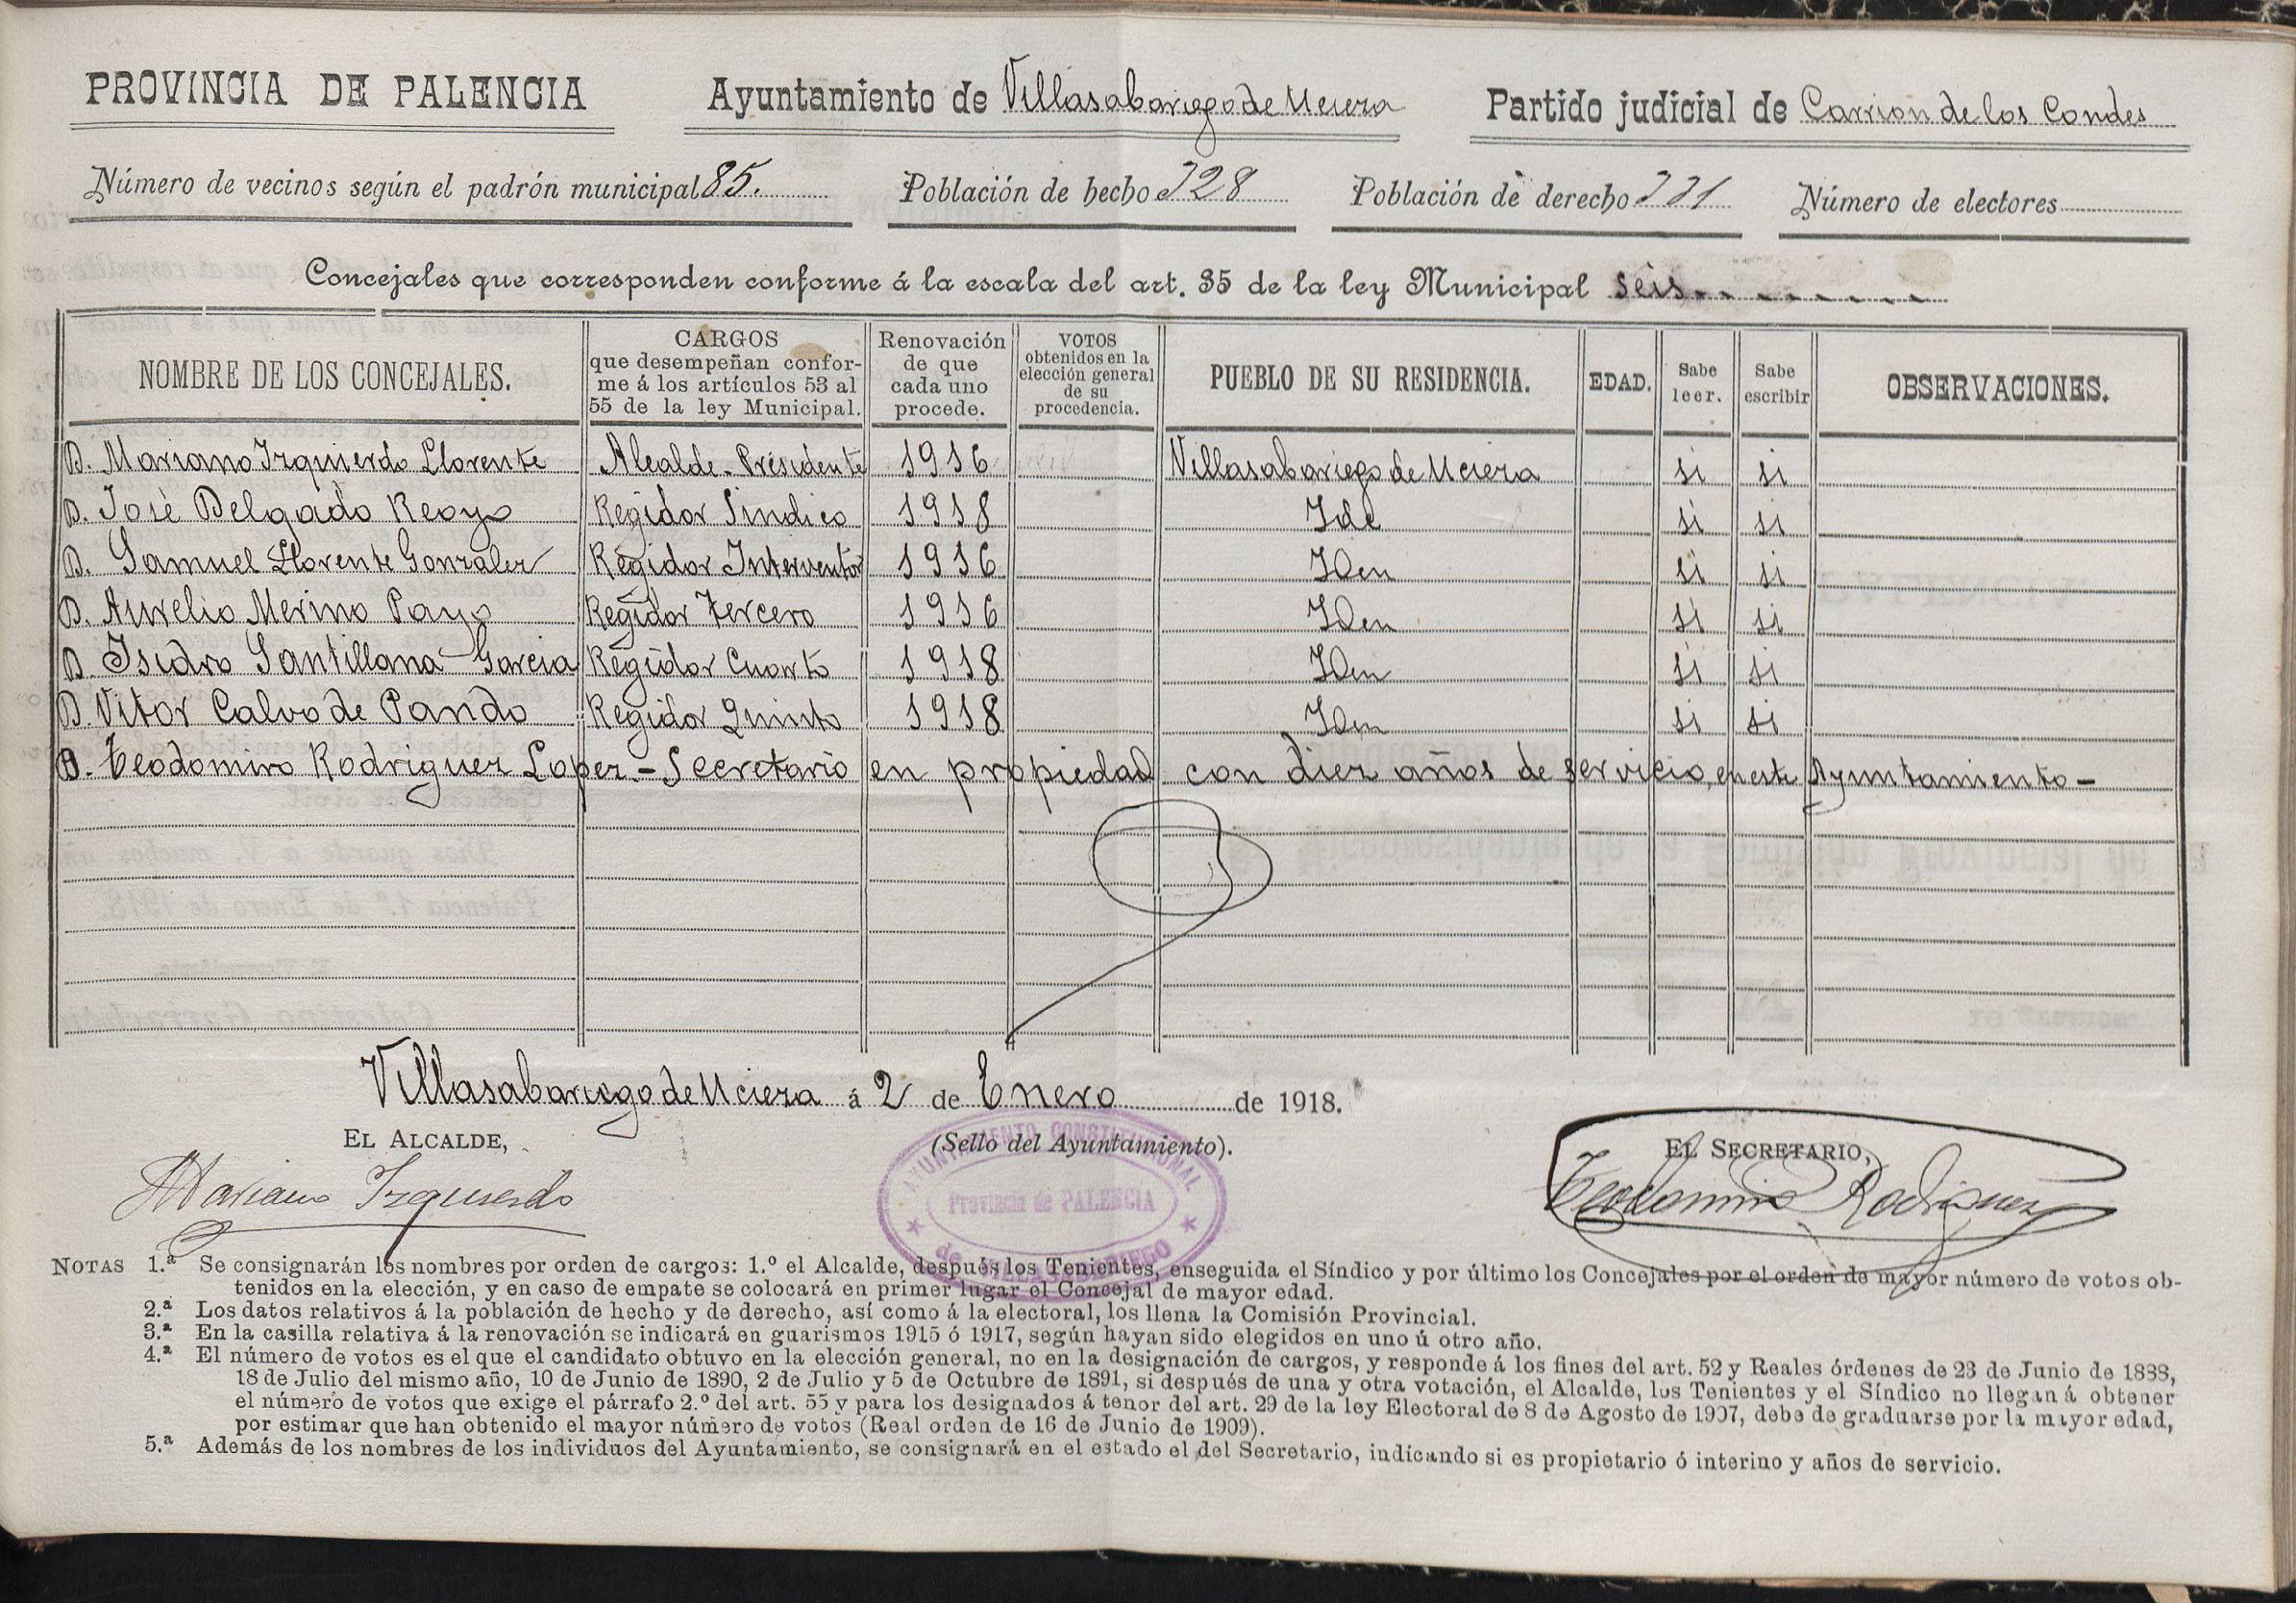 PROVINCIA DE PALENCIA Ayuntamiento de Villasabariego de Ucieza Partido judicial de Carrion de los Condes
Número de vecinos según el padrón municipal 85. Población de hecho 328 Población de derecho 331 Número de electores
Concejales que corresponden conforme á la escala del art. 35 de la ley Municipal seis
NOMBRE DE LOS CONCEJALES.
CARGOS
que desempeñan confor-
me á los artículos 53 al
55 de la ley Municipal.
Renovación
de que
cada uno
procede.
VOTOS
obtenidos en la
elección general
de su
procedencia.
PUEBLO DE SU RESIDENCIA.
EDAD.
Sabe
leer.
Sabe
escribir
OBSERVACIONES.
D. Mariano Izquierdo Llorente Alcalde-Presidente 1916 Villasabariego de Ucieza si si
D. José Delgado Reoyo Regidor Sindico 1918 Ide si si
D. Samuel Llorente Gonzalez Regidor Interventor 1916 Iden si si
D. Aurelio Merino Payo Regidor Tercero 1916 Iden si si
D. Isidro Santillana Garcia Regidor Cuarto 1918 Iden si si
D. Vitor Calvo de Pando Regidor Quinto 1918 Iden si si
D. Teodomiro Rodriguez Lopez - Secretario en propiedad con diez años de servicio, en este Ayuntamiento -
Villasabariego de Ucieza á 2 de Enero de 1918.
EL ALCALDE,
(Sello del Ayuntamiento).
EL SECRETARIO,
Mariano Izquierdo
AYUNTAMIENTO CONSTITUCIONAL
Provincia de PALENCIA
de VILLASABARIEGO
Teodomiro Rodriguez
NOTAS 1.ª Se consignarán los nombres por orden de cargos: 1.º el Alcalde, después los Tenientes, enseguida el Síndico y por último los Concejales por el orden de mayor número de votos ob-
tenidos en la elección, y en caso de empate se colocará en primer lugar el Concejal de mayor edad.
2.ª Los datos relativos á la población de hecho y de derecho, así como á la electoral, los llena la Comisión Provincial.
3.ª En la casilla relativa á la renovación se indicará en guarismos 1915 ó 1917, según hayan sido elegidos en uno ú otro año.
4.ª El número de votos es el que el candidato obtuvo en la elección general, no en la designación de cargos, y responde á los fines del art. 52 y Reales órdenes de 23 de Junio de 1888,
18 de Julio del mismo año, 10 de Junio de 1890, 2 de Julio y 5 de Octubre de 1891, si después de una y otra votación, el Alcalde, los Tenientes y el Síndico no llegan á obtener
el número de votos que exige el párrafo 2.º del art. 55 y para los designados á tenor del art. 29 de la ley Electoral de 8 de Agosto de 1907, debe de graduarse por la mayor edad,
por estimar que han obtenido el mayor número de votos (Real orden de 16 de Junio de 1909).
5.ª Además de los nombres de los individuos del Ayuntamiento, se consignará en el estado el del Secretario, indicando si es propietario ó interino y años de servicio.